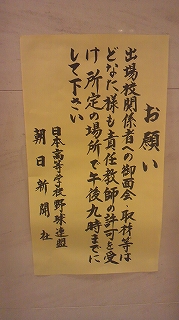 お願い
出場校関係者への御面会・取材等は
どなた様も責任教師の許可を受
け所定の場所で午後九時までに
して下さい
日本高等学校野球連盟
朝日新聞社